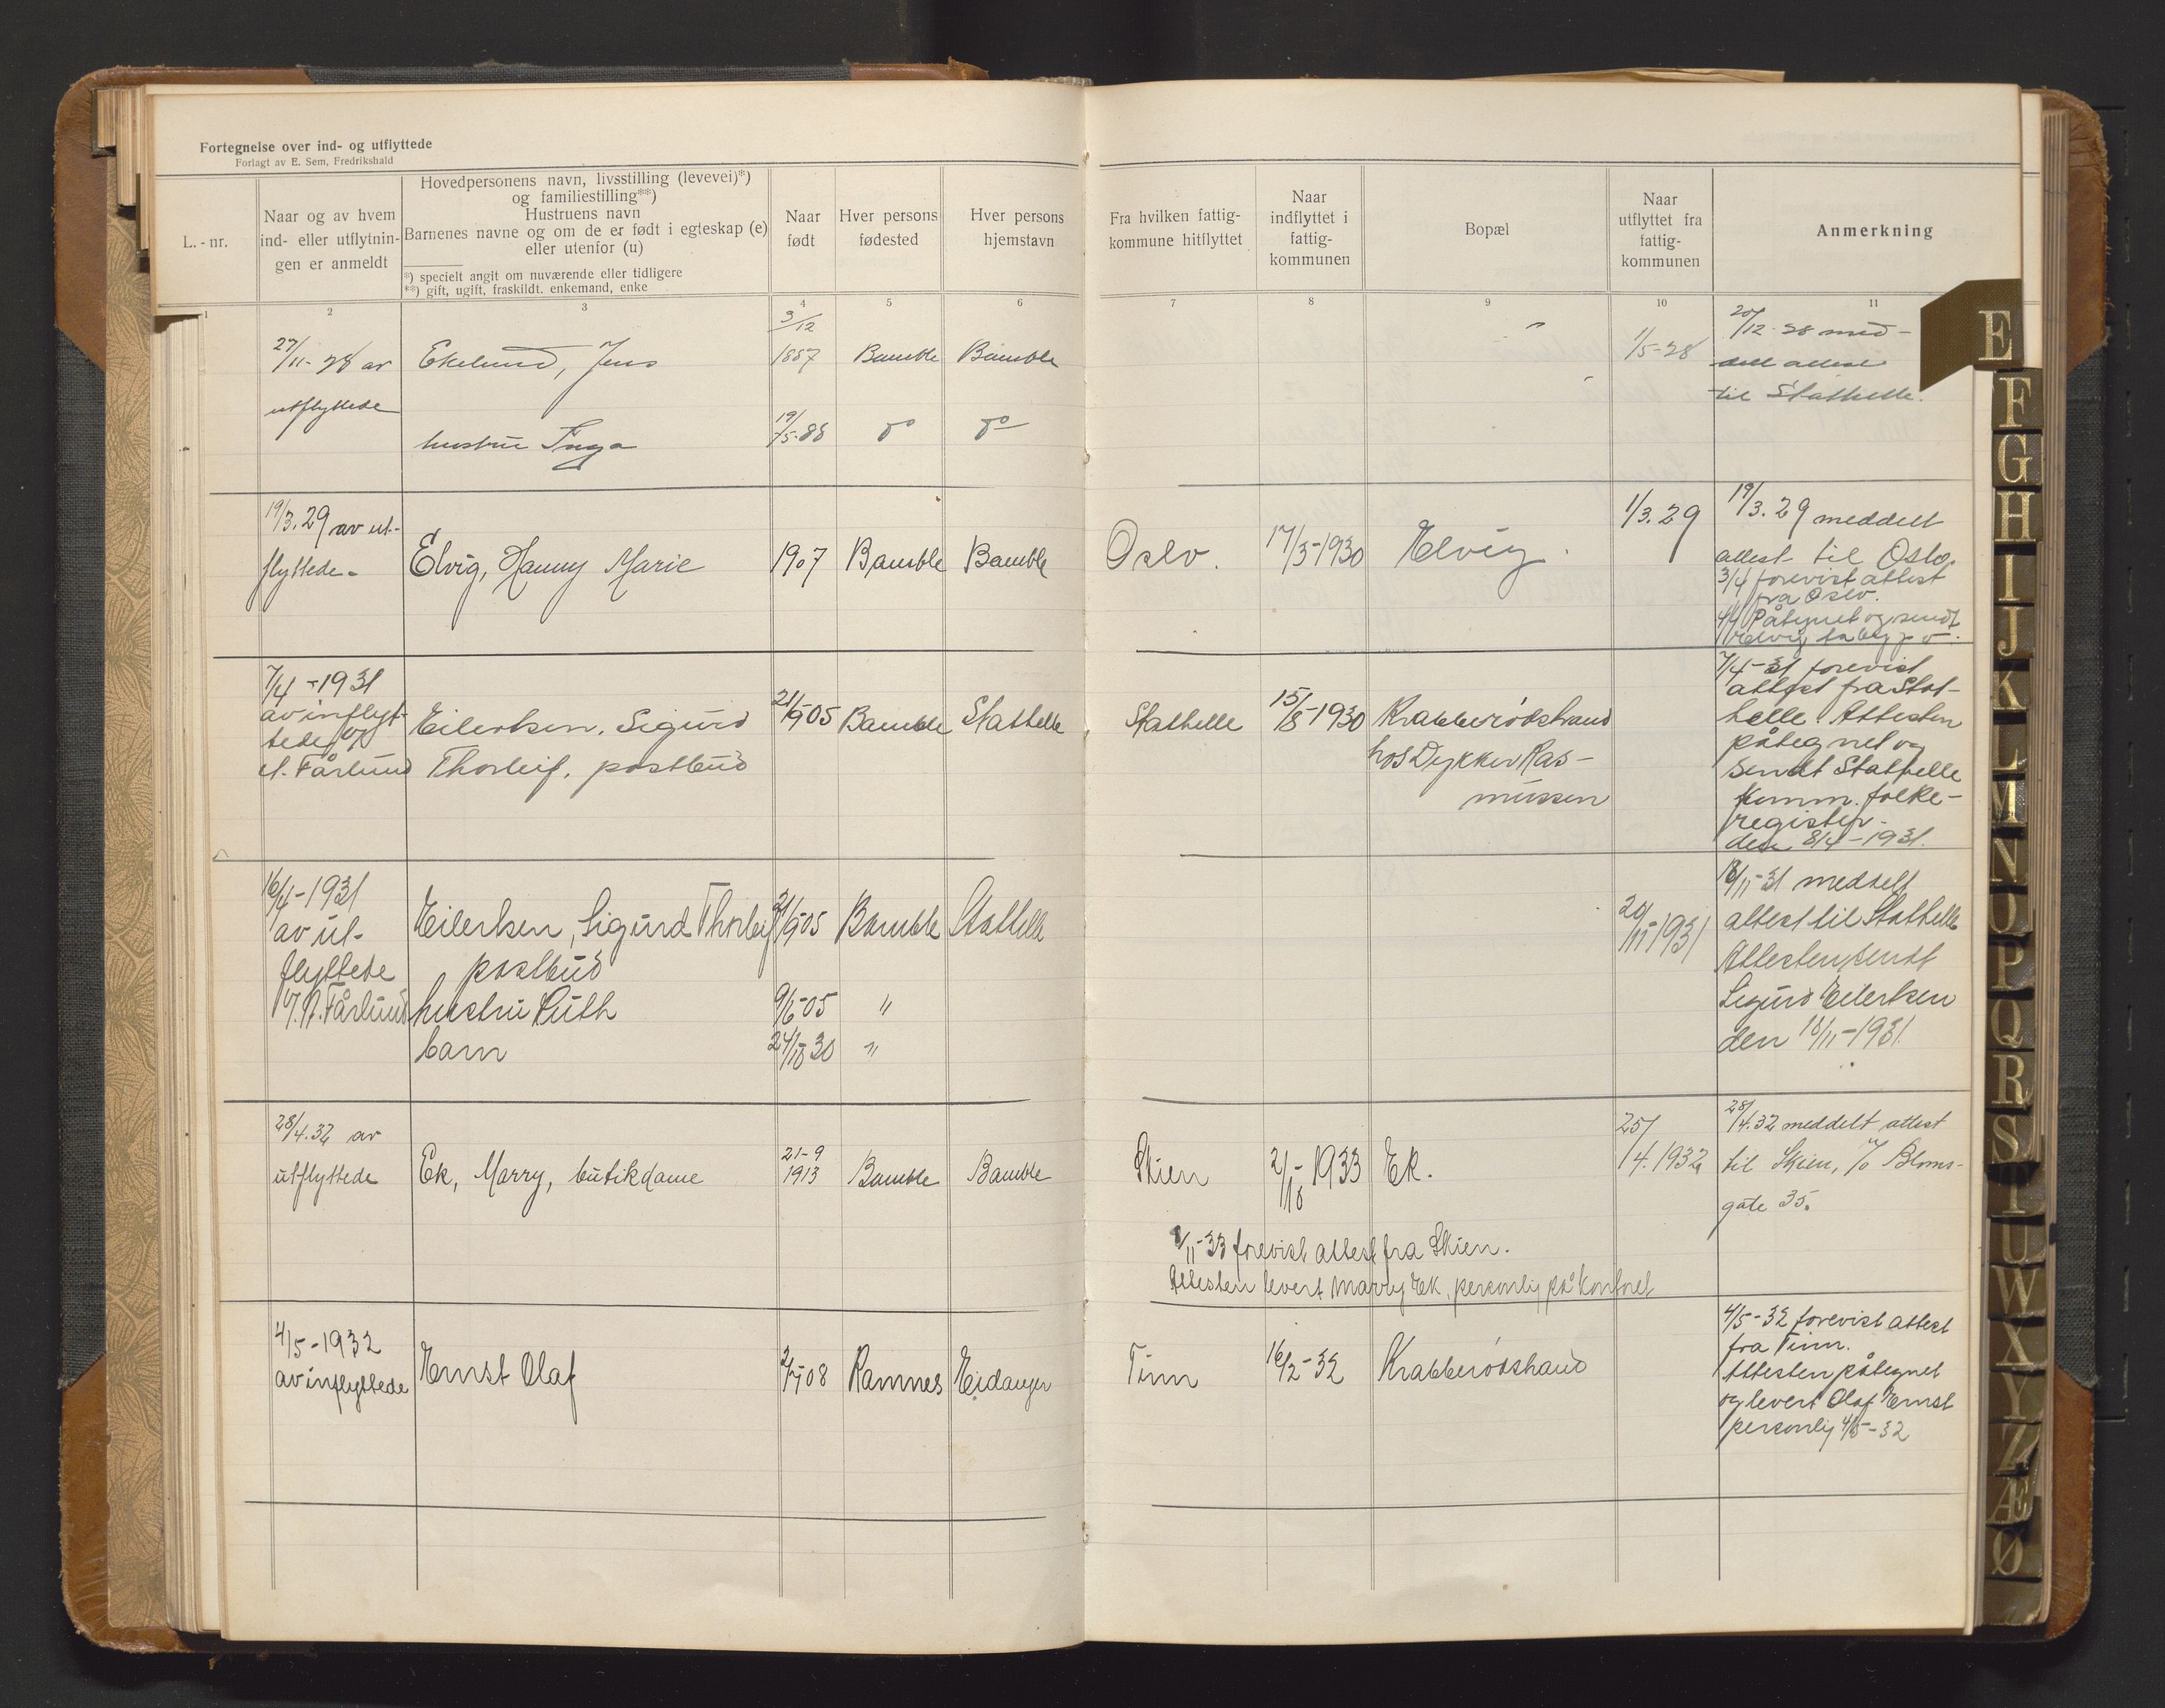 Fortegnelse over ind- og utflyttede
Forlagt av E. Sem, Fredrikshald
L.-nr.
Naar og av hvem ind- eller utflytningen er anmeldt
Hovedpersonens navn, livsstilling (levevei)*)
og familiestilling**)
Hustruens navn
Barnenes navne og om de er født i egteskap (e)
eller utenfor (u)
*) specielt angit om nuværende eller tidligere
**) gift, ugift, fraskildt. enkemand, enke
Naar født
Hver persons fødested
Hver persons hjemstavn
Fra hvilken fattig-kommune hitflyttet
Naar indflyttet i fattig-kommunen
Bopæl
Naar utflyttet fra fattig-kommunen
Anmerkning
1 2 3 4 5 6 7 8 9 10 11
27/11-28 av
utflyttede
Ekelund, Jens
3/12
1887
Bamble
Bamble
1/5-28
20/12-28 med-
delt attest
til Stathelle.
hustru Inga
19/5-88
do
do
19/3.29 av ut-
flyttede.
Elvig, Hanny Marie
1907
Bamble
Bamble
Oslo.
17/3-1930
Elvig.
1/3.29
19/3.29 meddelt
attest til Oslo.
3/4 forevist attest
fra Oslo.
4/4 Påtegnet og sendt
7/4-1931
av inflyt-
tede v/
A. Fårlund
Eilertsen, Sigurd
Thorleif, postbud
21/9-05
Bamble
Stathelle
Stathelle
15/8-1930
Krabberødstrand
hos Dykker Ras-
mussen
7/4-31 forevist
attest fra Stat-
helle. Attesten
påtegnet og
sendt Stathelle
komm. folke-
register
den 8/4-1931.
16/4-1931
av ut-
flyttede
v/. A. Fårlund
Eilertsen, Sigurd Thorleif
postbud
hustru Ruth
barn
21/9-05
9/6-05
24/10 30
Bamble
"
"
Stathelle
20/11-1931
18/11-31 meddelt
attest til Stathelle
Attesten sendt
Sigurd Eilertsen
den 18/11-1931.
28/4.32 av
utflyttede
Ek, Marry, butikdame
21-9
1913
Bamble
Bamble
Skien
2/10-1933
Ek.
25/4.1932
28/4.32 meddelt attest
til Skien, Bloms-
gate 35.
/11-33 forevist attest fra Skien.
Attesten levert Marry Ek, personlig på kontoret
4/5-1932
av inflyttede
Ernst Olaf
Ramnes
Eidanger
Tinn
16/2-32
Krabberødstrand
4/5-32 forevist attest
fra Tinn.
Attesten påtegnet
og levert Olaf Ernst
personlig 4/5-32
E
F
G
H
I
J
K
L
M
N
O
P
Q
R
S
T
U
W
X
Y
Z
Æ
Ø